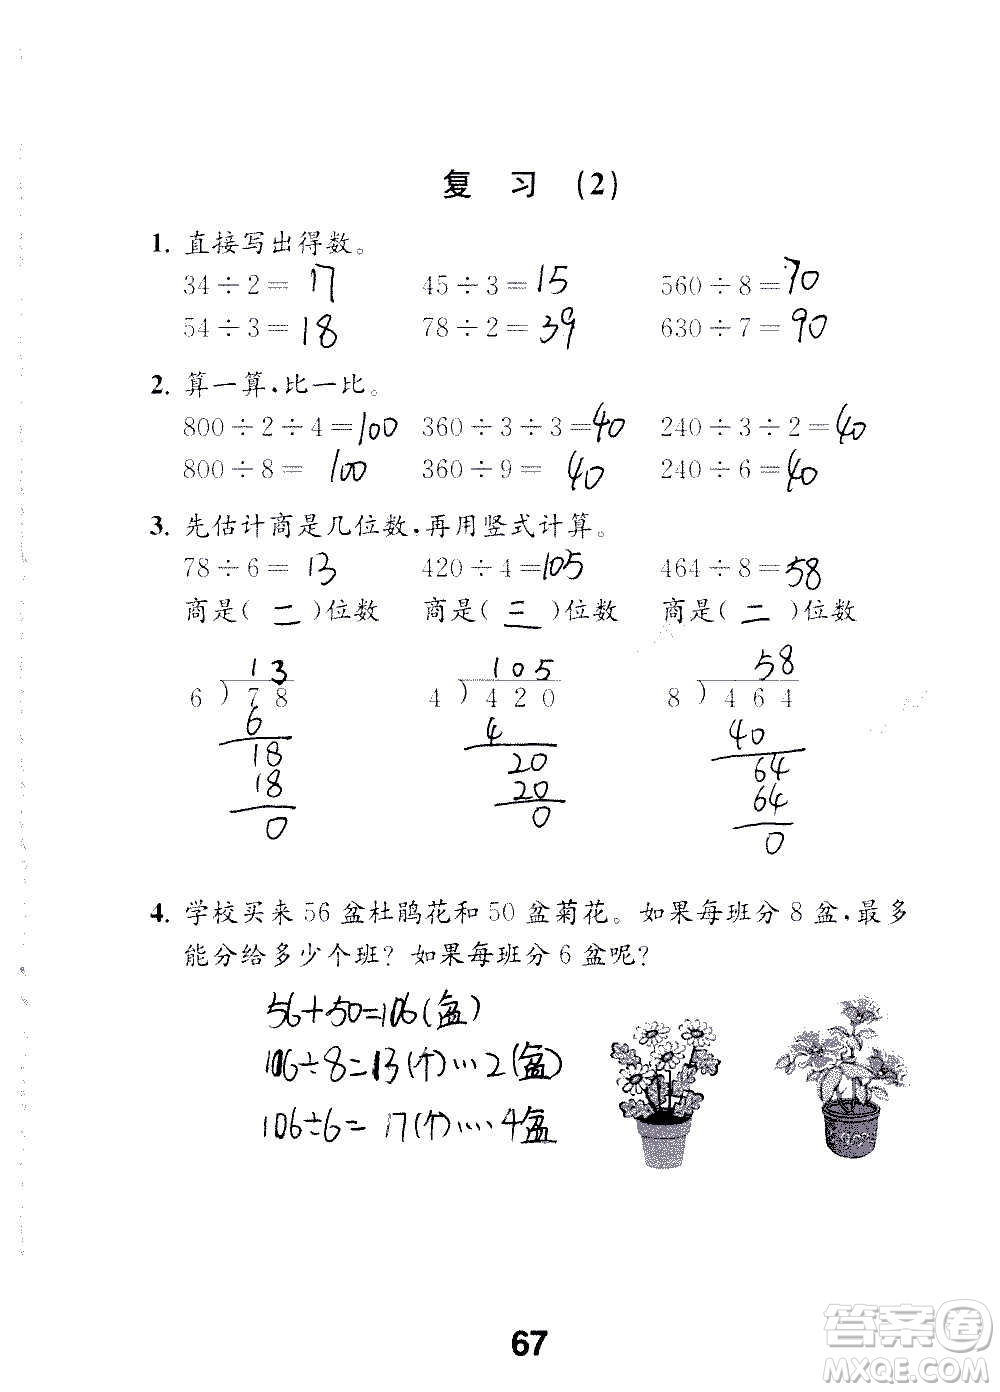 复 习 (2)
1. 直接写出得数。
34÷2= 17 45÷3= 15 560÷8= 70
54÷3= 18 78÷2= 39 630÷7= 90
2. 算一算,比一比。
800÷2÷4=100 360÷3÷3=40 240÷3÷2=40
800÷8= 100 360÷9= 40 240÷6= 40
3. 先估计商是几位数,再用竖式计算。
78÷6= 13 420÷4=105 464÷8=58
商是( 二 )位数 商是( 三 )位数 商是( 二 )位数
13 105 58
6)78 4)420 8)464
6 4 40
18 20 64
18 20 64
0 0 0
4. 学校买来 56 盆杜鹃花和 50 盆菊花。如果每班分 8 盆,最多
能分给多少个班?如果每班分 6 盆呢?
56+50=106(盆)
106÷8=13(个)…2(盆)
106÷6= 17(个)….4盆
67
答案圈
MXQE.COM